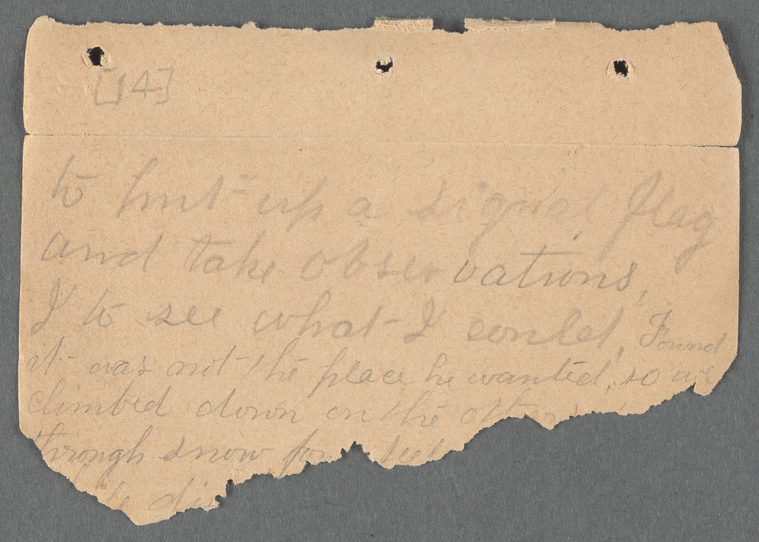 [14]
to put up a signal flag
and take observations,
I to see what I could, Found
it was not the place he wanted, so we
climbed down on the other
through snow feet